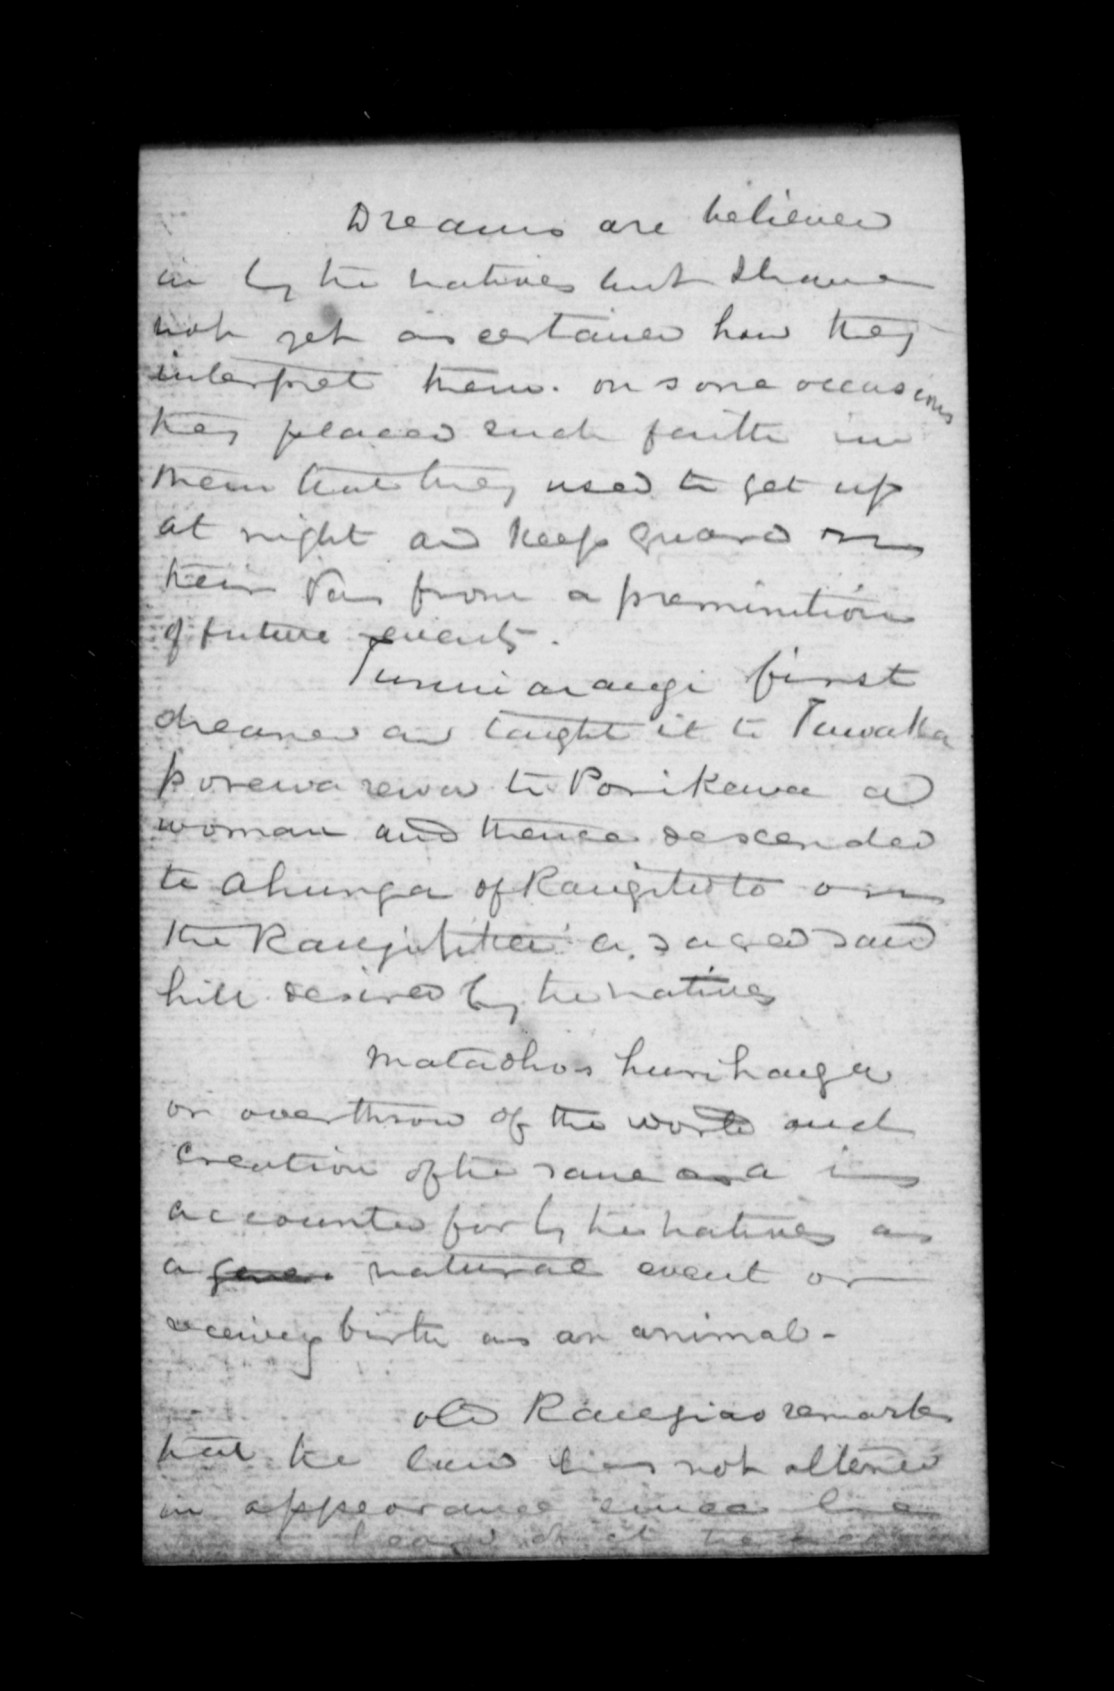 Dreams are believed
in by the natives but I have
not yet ascertained how they
interpret them. on some occasions
they placed such faith in
them that they used to get up
at night and keep guard on
their Pas from a preminition
of future events.
first
dreamed and taught it to Tawaka
porewa rewa to Porikawa a
woman and thence descended
to Ahunga of Rangitoto on
the a sacred sand
hill desired by the natives
hurihanga
or overthrow of the world and
creation of the same is
accounted for by the natives as
a natural event or
receiving birth as an animal -
old Rangiao remarks
that the land has not altered
in appearance since he